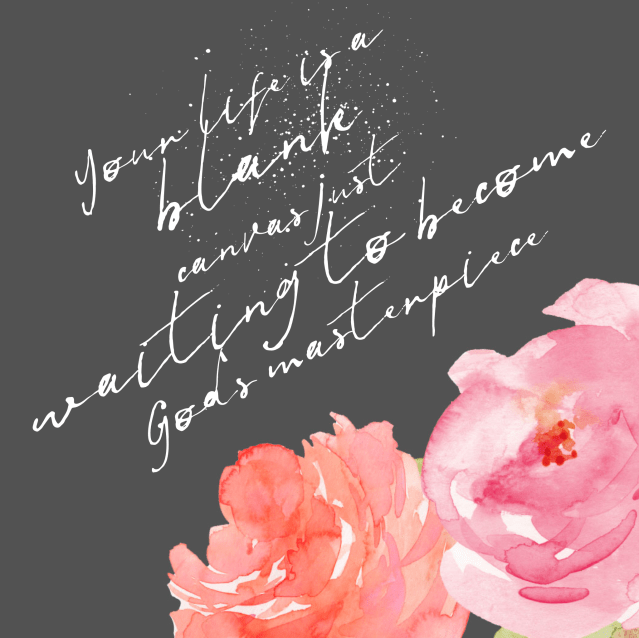 your life is a
blank
canvas just
waiting to become
Gods masterpiece